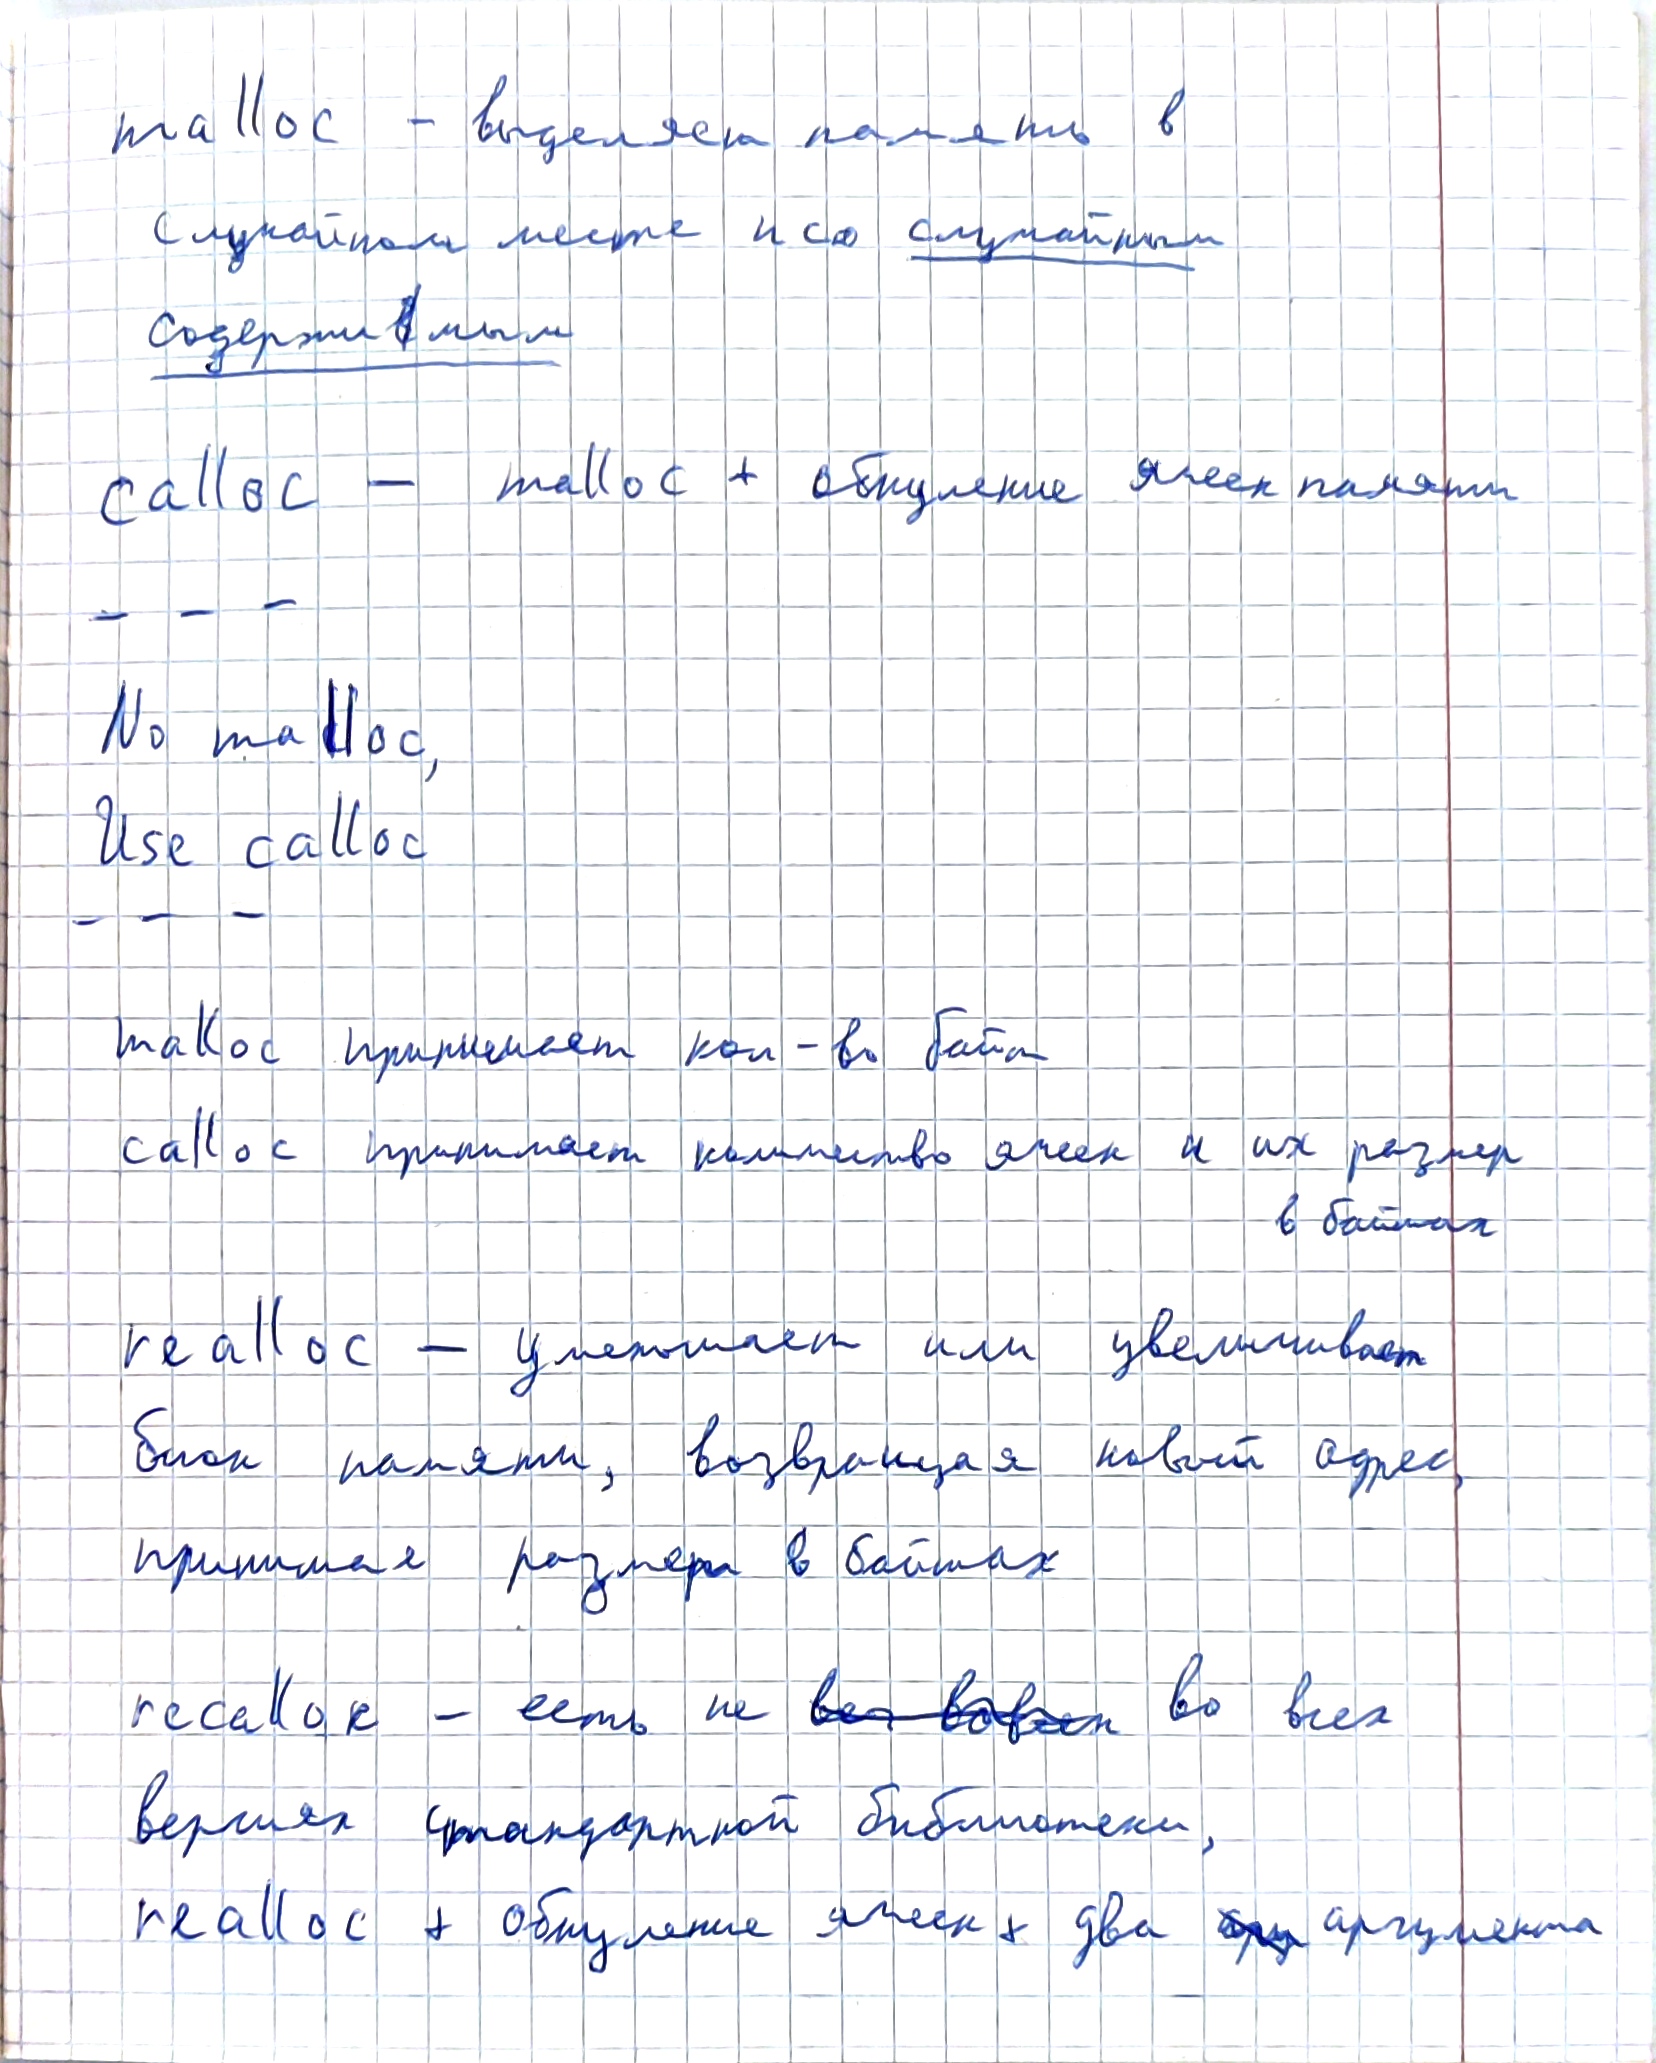 malloc - выделяет память в
случайном месте и со случайным
содержимым
calloc — malloc + обнуление ячеек памяти
- - -
No malloc,
Use calloc
- - -
malloc принимает кол-во байт
calloc принимает количество ячеек и их размер
в байтах
realloc — уменьшает или увеличивает
блок памяти, возвращая новый адрес,
принимая размер в байтах
recalloc - есть не во всех
версиях стандартной библиотеки,
realloc + обнуление ячеек + два аргумента